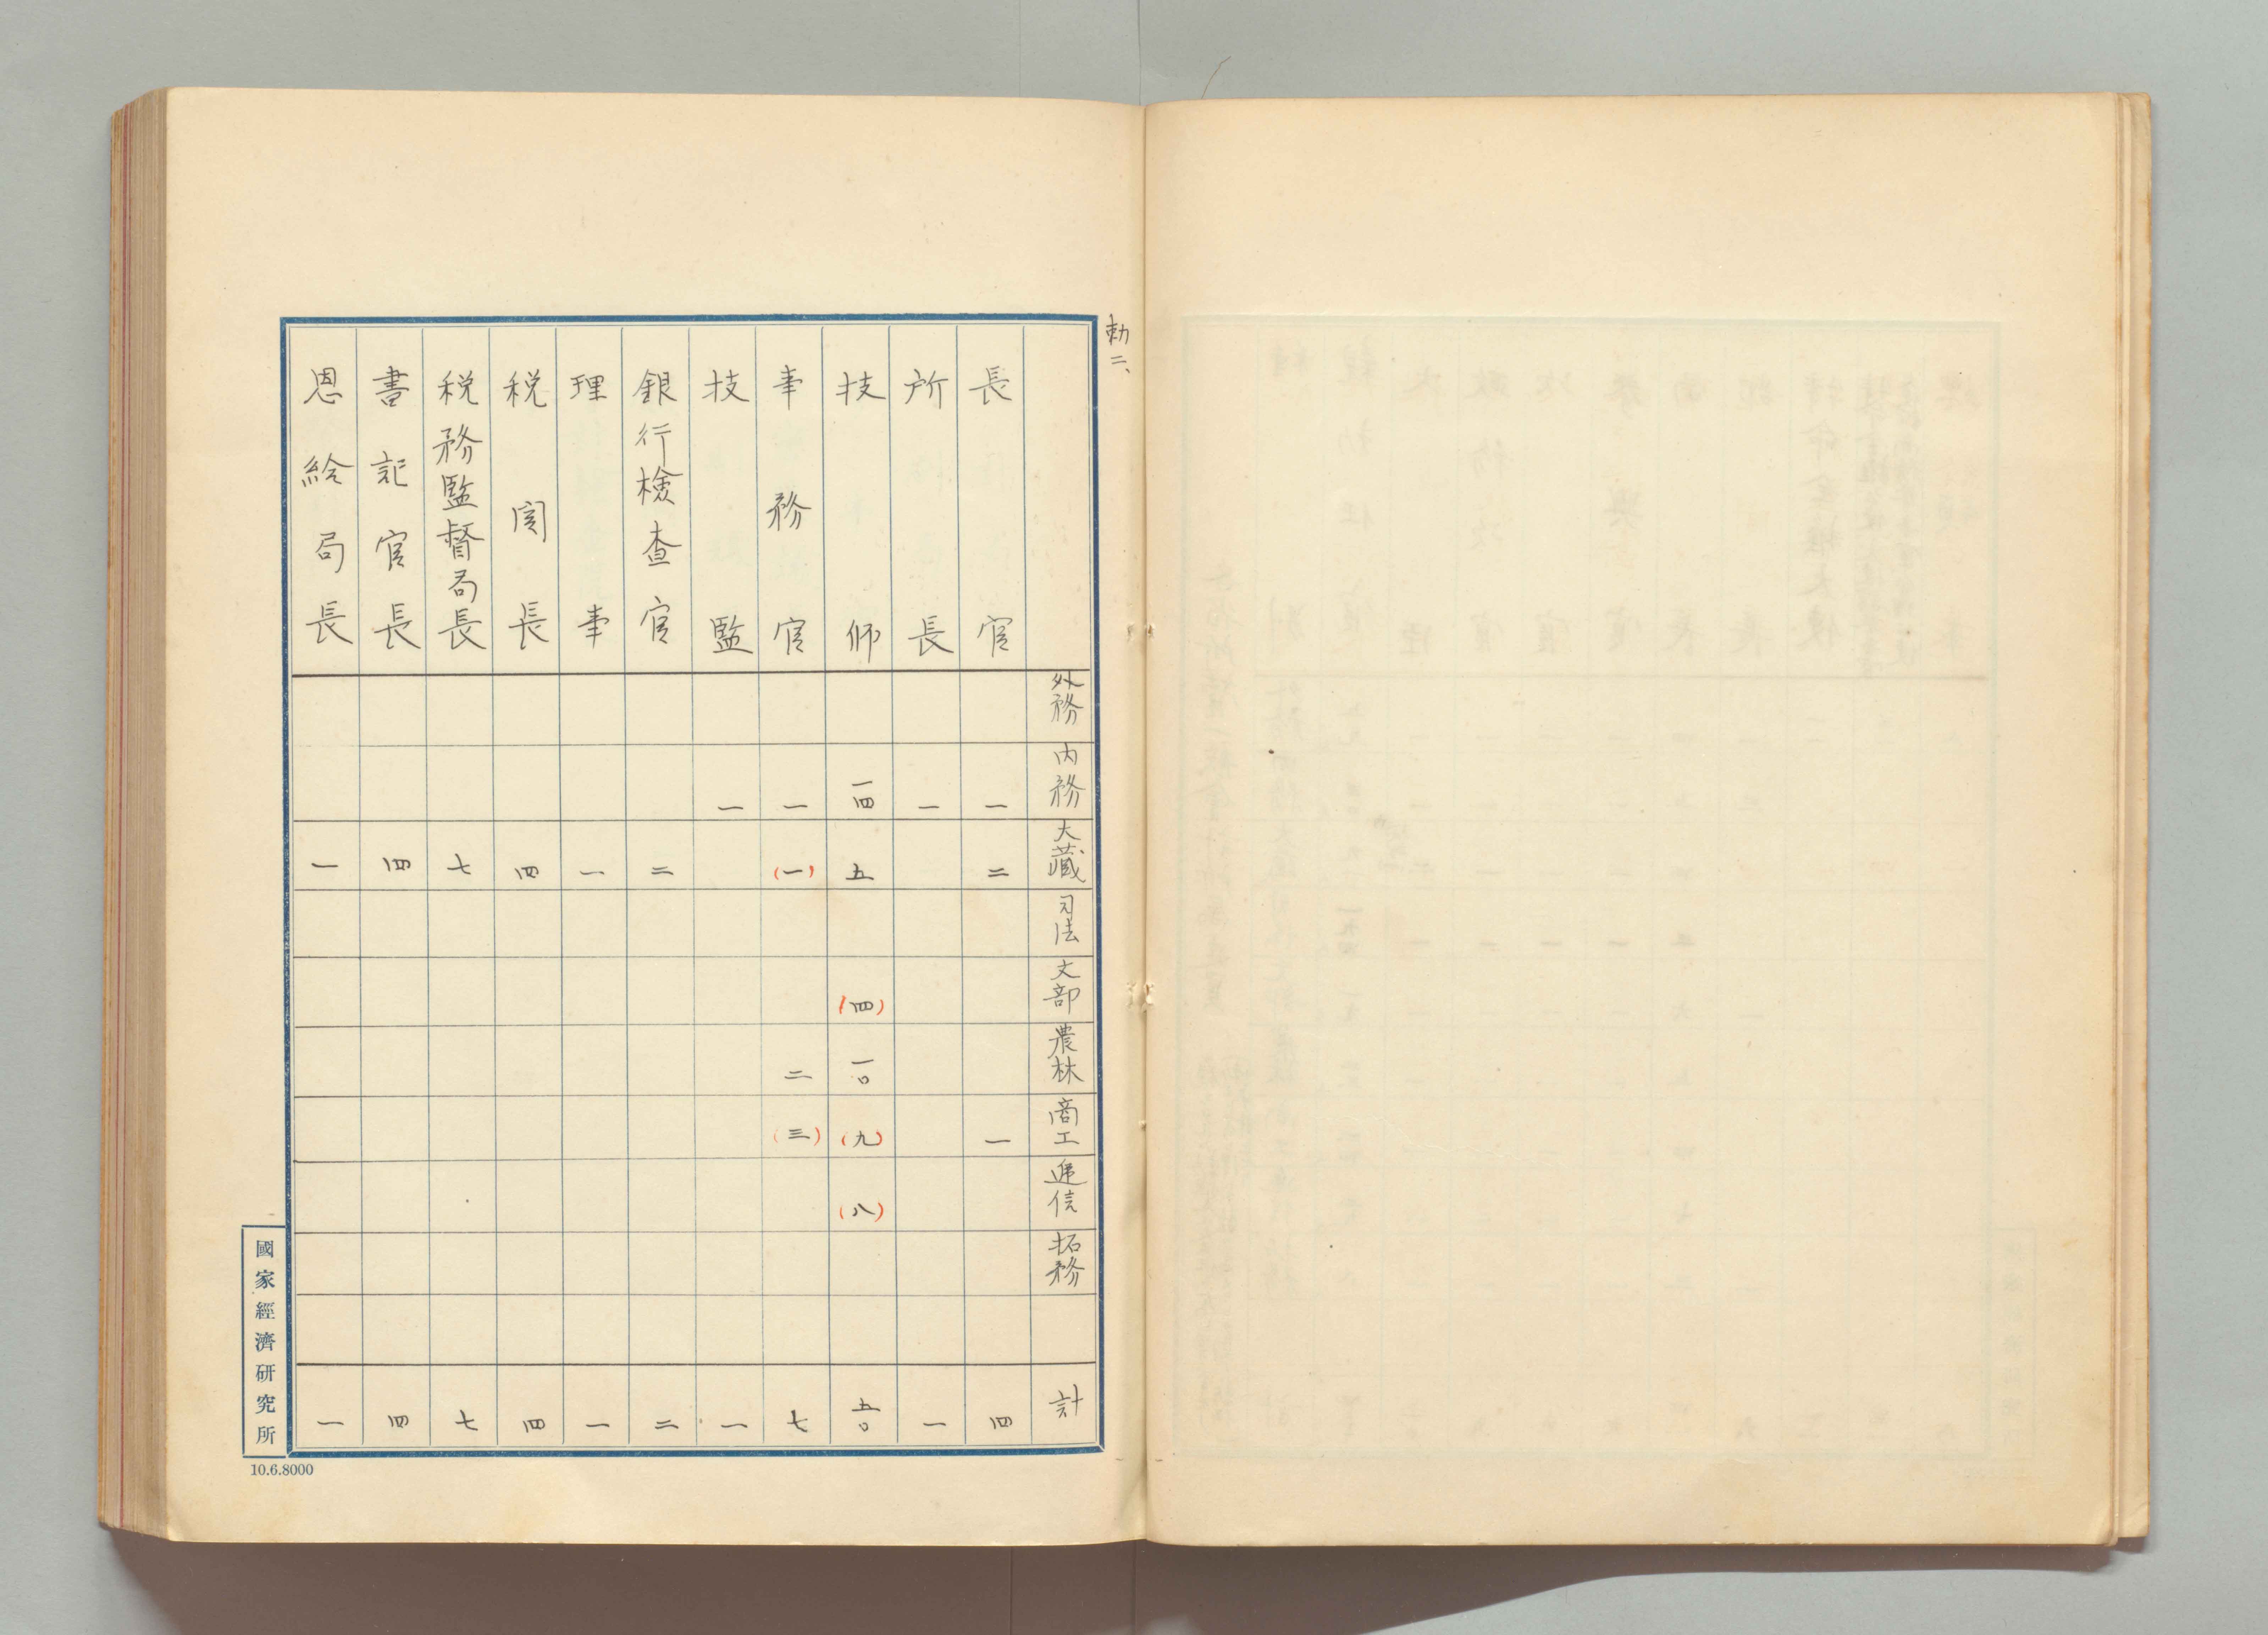 勅二、
外務 内務 大藏 司法 文部 農林 商工 逓信 拓務 計
長官 一 二 一 四
所長 一 一
技師 一四 五 (四) 一〇 (九) (八) 五〇
事務官 一 (一) 二 (三) 七
技監 一 一
銀行検査官 二 二
理事 一 一
税関長 四 四
税務監督局長 七 七
書記官長 四 四
恩給局長 一 一
國家經濟研究所
10.6.8000